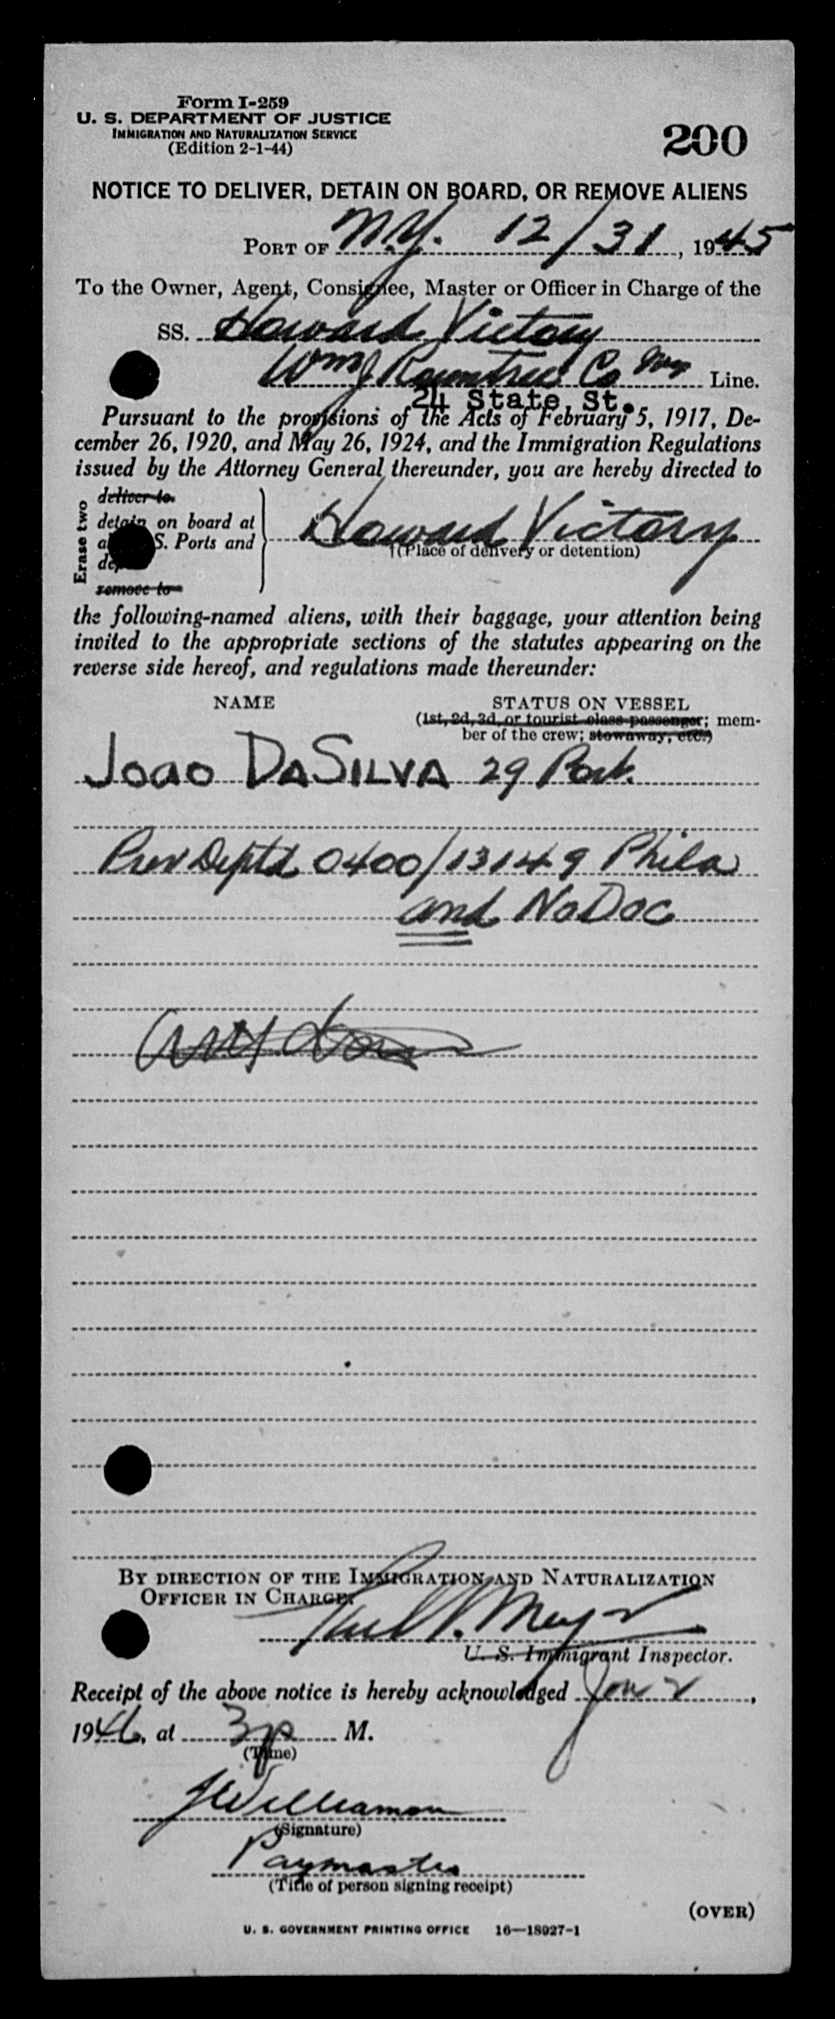 Form I-259
U. S. DEPARTMENT OF JUSTICE
IMMIGRATION AND NATURALIZATION SERVICE
(Edition 2-1-44)
200
NOTICE TO DELIVER, DETAIN ON BOARD, OR REMOVE ALIENS
PORT OF N.Y. 12/31, 1945
To the Owner, Agent, Consignee, Master or Officer in Charge of the
SS. Howard Victory
Wm J Rountree Co Line.
24 State St.
Pursuant to the provisions of the Acts of February 5, 1917, De-
cember 26, 1920, and May 26, 1924, and the Immigration Regulations
issued by the Attorney General thereunder, you are hereby directed to
Erase two
deliver to
detain on board at
S. Ports and
remove to
Howard Victory
†(Place of delivery or detention)
the following-named aliens, with their baggage, your attention being
invited to the appropriate sections of the statutes appearing on the
reverse side hereof, and regulations made thereunder:
NAME STATUS ON VESSEL
(1st, 2d, 3d, or tourist class passenger; mem-
ber of the crew; stowaway, etc.)
Joao DaSilva 29 Port.
Prev Deptd 0400/13149 Phila
and No Doc
BY DIRECTION OF THE IMMIGRATION AND NATURALIZATION
OFFICER IN CHARGE:
U. S. Immigrant Inspector.
Receipt of the above notice is hereby acknowledged Jan 2,
1946, at 3p M.
(Time)
J Williamson
(Signature)
Paymaster
(Title of person signing receipt)
(OVER)
U. S. GOVERNMENT PRINTING OFFICE 16—18027-1